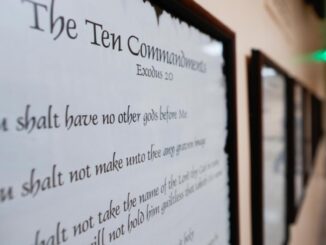 The Ten Commandments
Exodus 20
shalt have no other gods before Me
shalt not make unto thee any graven image
shalt not take the name of the Lord thy
will not hold him guiltless that